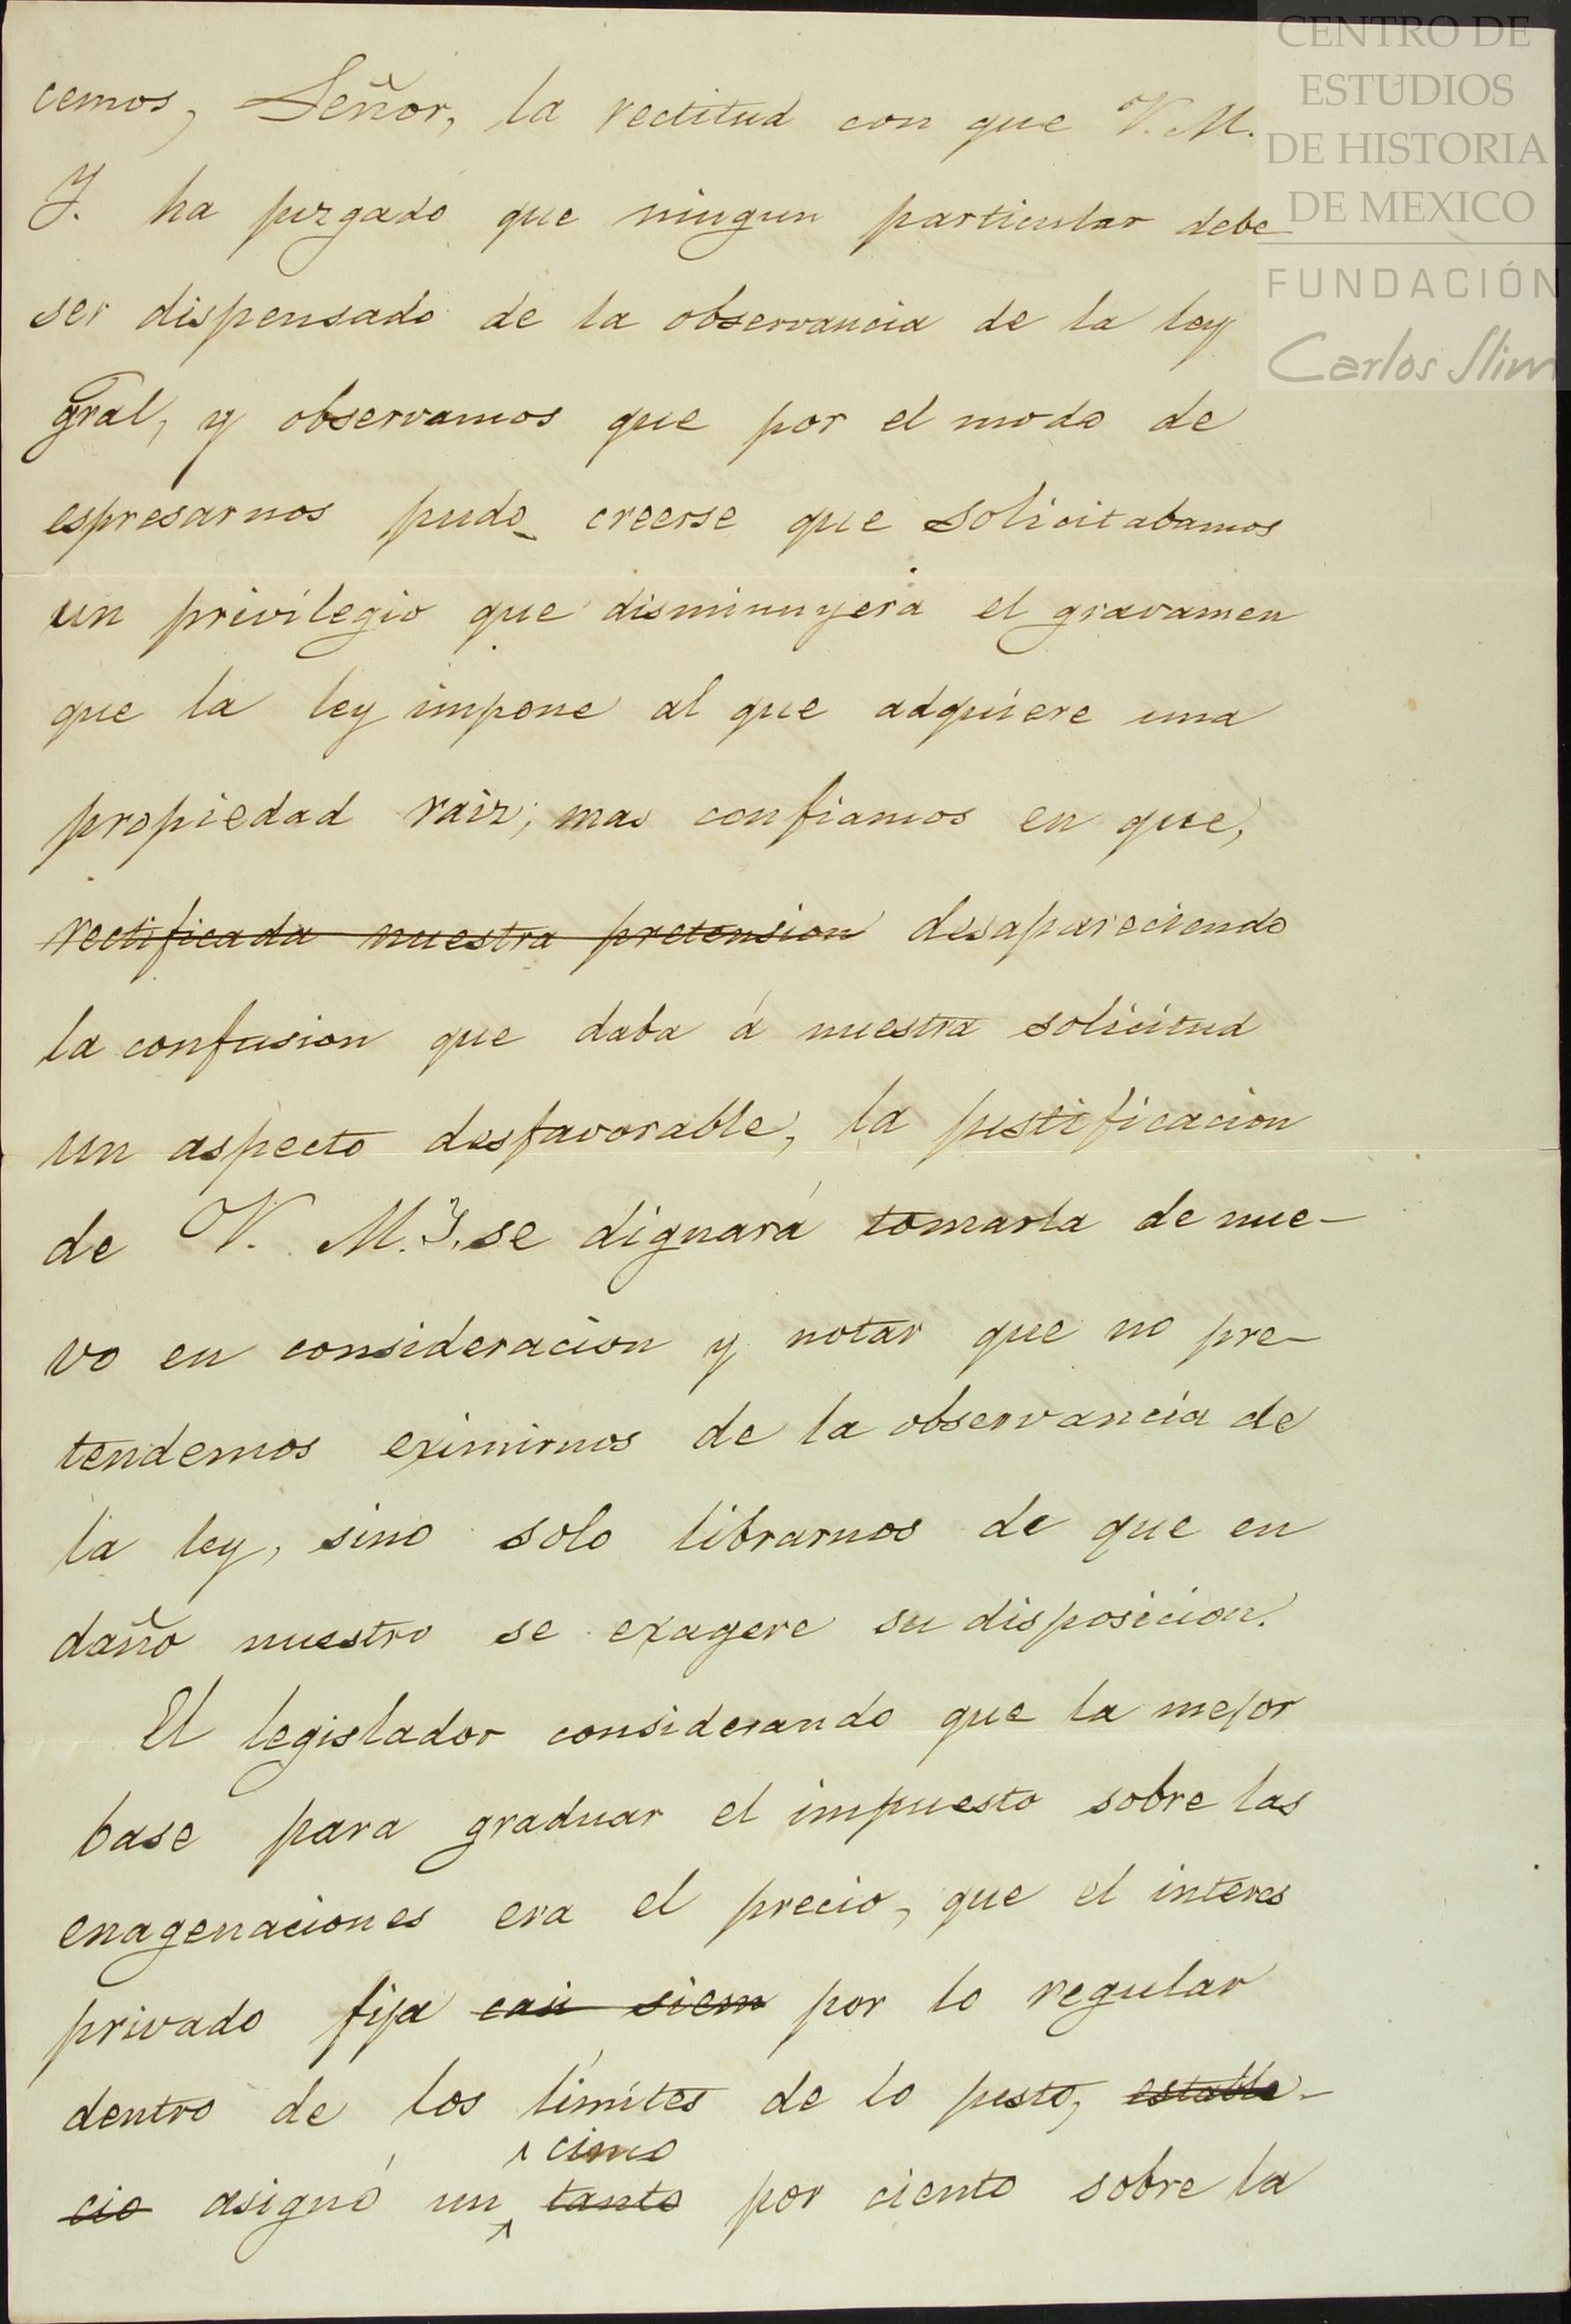 cemos, Señor, la rectitud con que V. M.
Y. ha juzgado que ningun particular debe
ser dispensado de la observancia de la ley
gral, y observamos que por el modo de
espresarnos pudo creerse que solicitabamos
un privilegio que disminuyera el gravamen
que la ley impone al que adquiere una
propiedad raiz; mas confiamos en que,
rectificada nuestra pretension desapareciendo
la confusion que daba á nuestra solicitud
un aspecto desfavorable, la justificacion
de V. M. Y. se dignará tomarla de nue-
vo en consideracion y notar que no pre-
tendemos eximirnos de la observancia de
la ley, sino solo librarnos de que en
daño nuestro se exagere su disposicion.
El legislador considerando que la mejor
base para graduar el impuesto sobre las
enagenaciones era el precio, que el interes
privado fija casi siem por lo regular
dentro de los límites de lo justo, estable-
cinco
cio asignó un tanto por ciento sobre la
CENTRO DE
ESTUDIOS
DE HISTORIA
DE MEXICO
FUNDACIÓN
Carlos Slim